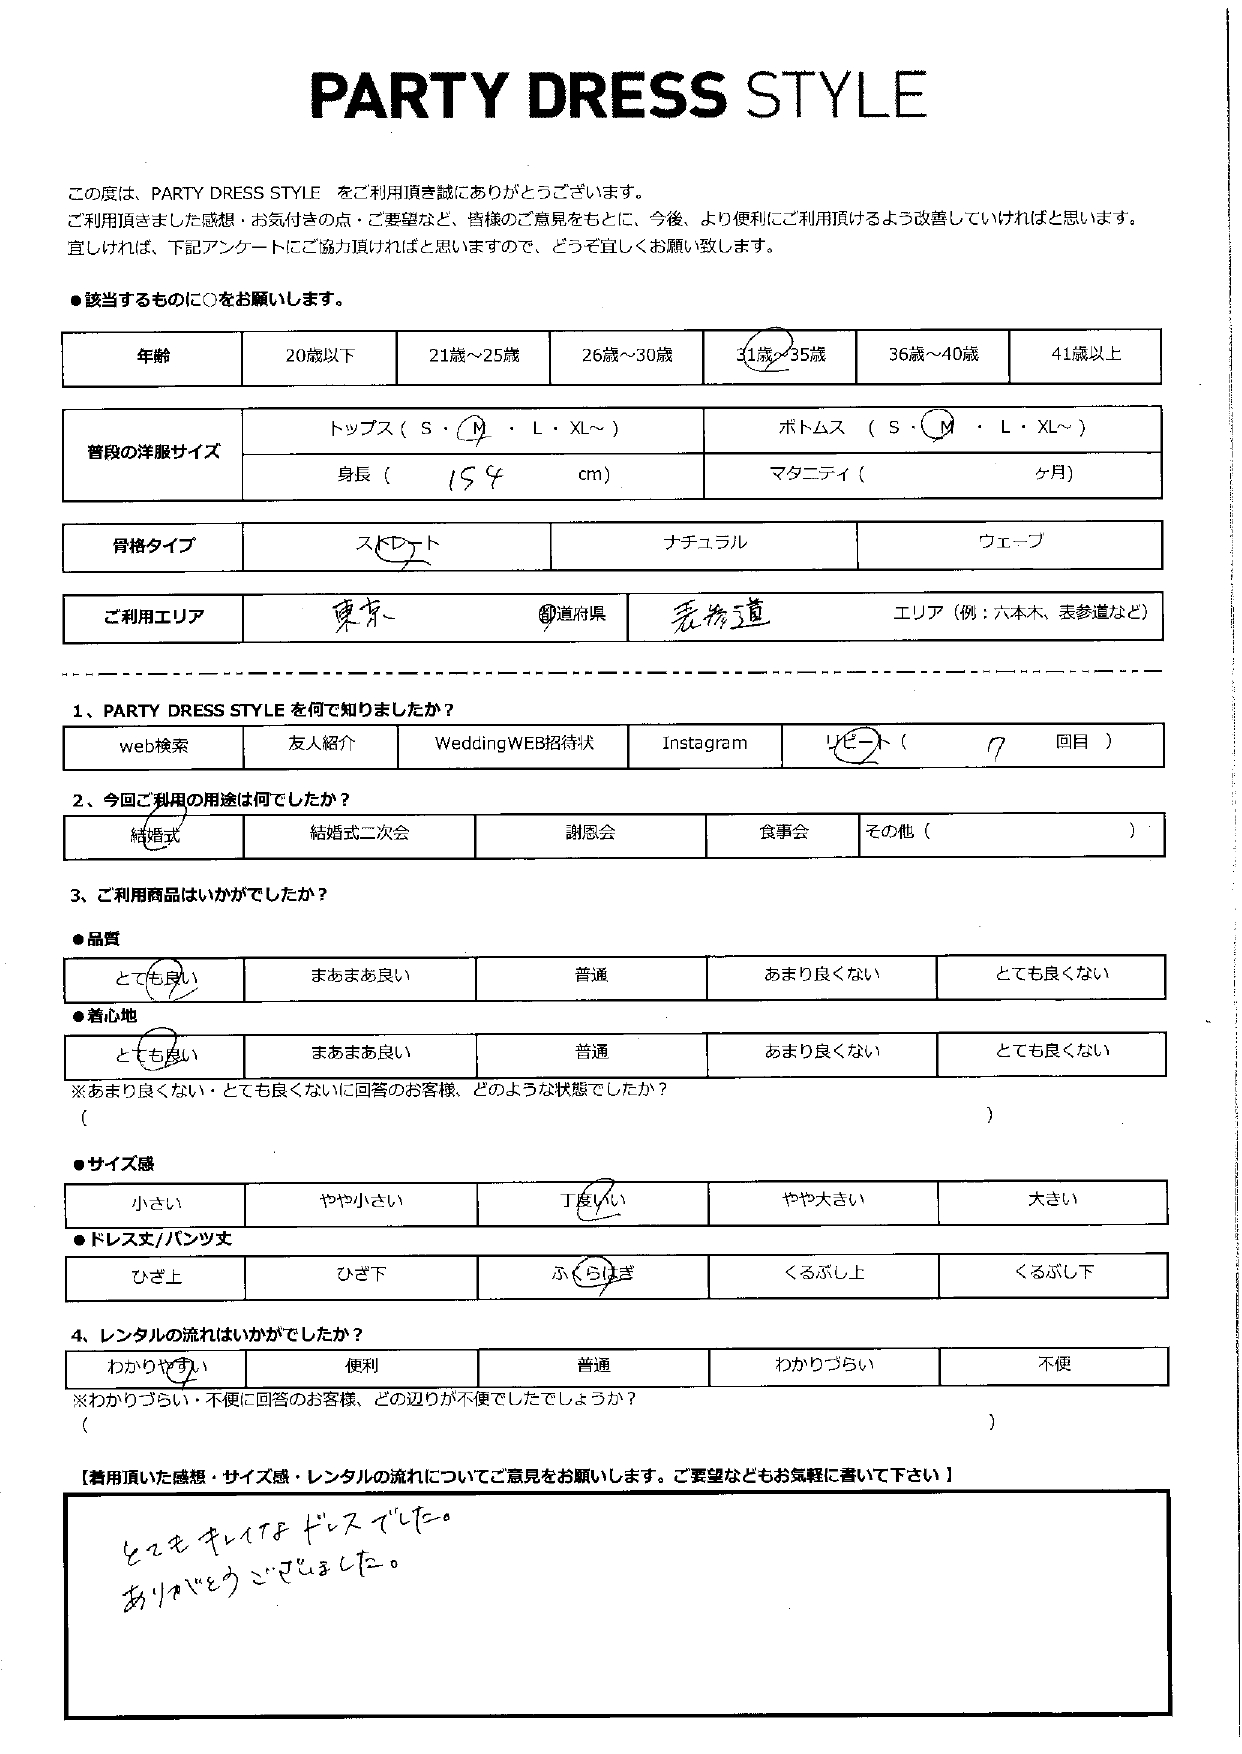 PARTY DRESS STYLE
この度は、PARTY DRESS STYLE をご利用頂き誠にありがとうございます。
ご利用頂きました感想・お気付きの点・ご要望など、皆様のご意見をもとに、今後、より便利にご利用頂けるよう改善していければと思います。
宜しければ、下記アンケートにご協力頂ければと思いますので、どうぞ宜しくお願い致します。
●該当するものに○をお願いします。
年齢 20歳以下 21歳～25歳 26歳～30歳 31歳～35歳 36歳～40歳 41歳以上
普段の洋服サイズ
トップス ( S ・ M ・ L ・ XL～ ) ボトムス ( S ・ M ・ L ・ XL～ )
身長 ( 154 cm) マタニティ ( ヶ月)
骨格タイプ ストレート ナチュラル ウェーブ
ご利用エリア 東京 都道府県 表参道 エリア（例：六本木、表参道など）
1、PARTY DRESS STYLE を何で知りましたか？
web検索 友人紹介 WeddingWEB招待状 Instagram リピート ( 7 回目 )
2、今回ご利用の用途は何でしたか？
結婚式 結婚式二次会 謝恩会 食事会 その他 ( )
3、ご利用商品はいかがでしたか？
●品質
とても良い まあまあ良い 普通 あまり良くない とても良くない
●着心地
とても良い まあまあ良い 普通 あまり良くない とても良くない
※あまり良くない・とても良くないに回答のお客様、どのような状態でしたか？
( )
●サイズ感
小さい やや小さい 丁度いい やや大きい 大きい
●ドレス丈/パンツ丈
ひざ上 ひざ下 ふくらはぎ くるぶし上 くるぶし下
4、レンタルの流れはいかがでしたか？
わかりやすい 便利 普通 わかりづらい 不便
※わかりづらい・不便に回答のお客様、どの辺りが不便でしたでしょうか？
( )
【着用頂いた感想・サイズ感・レンタルの流れについてご意見をお願いします。ご要望などもお気軽に書いて下さい 】
とてもキレイなドレスでした。
ありがとうございました。